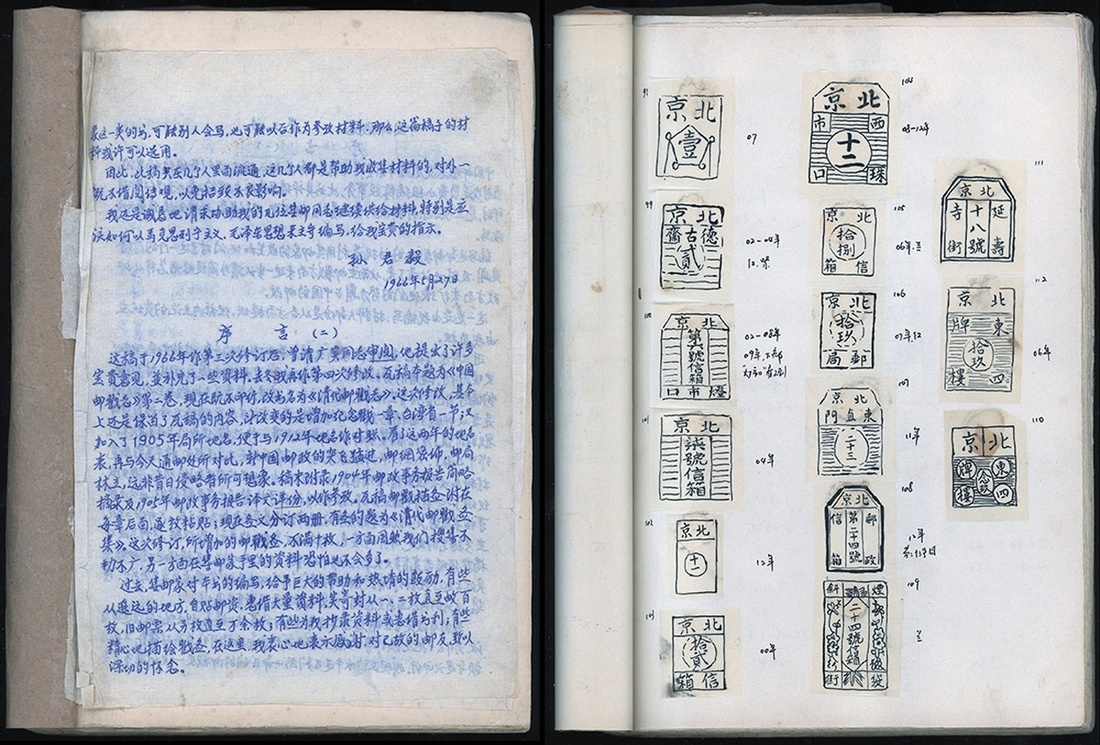 最这一类的书,可供别人会写,也可供以后作为参考材料.那么这篇稿子的材
料或许可以选用。
因此,此稿只在几个人里面流通,这几个人都是帮助我收集材料的,对外一
概不借阅传观,以免招致不良影响。
我还是诚恳地请求协助我的几位集邮同志继续供给材料,特别是应
该如何以马克思列宁主义、毛泽东思想来主导编写,给我宝贵的指示。
孙君毅
1966年5月27日
序 言 (二)
这稿于1966年作第三次修订后,曾请 同志审阅,他提出了许多
宝贵意见,並补充了一些资料,去冬我再作第四次修改。瓦稿本题为《中国
邮戳志》第二卷,现在既不印行,改书名为《清代邮戳志》。这次修改,基本
上还是保留了瓦稿的内容,计改变的是增加纪念戳一章,台湾省一节,又
加入了1905年局所地名,便于与1912年地名作对照。有了这两年的地名
表,再与今天通邮处所对比,新中国邮政的突飞猛进,邮网密佈,邮局
林立,这非昔日侵略者所可想象。稿末附录1904年邮政事务报告简略
摘录及1905年邮政事务报告译文详份,以作参考。瓦稿邮戳描叠附在
每章后面,逐枚粘贴;现在叠文分订两册,有叠的题为《清代邮戳叠
集》。这次修订,所增加的邮戳叠,不满十枚,一方面固然我们搜集不
勤不广,另一方面在集邮家手里的资料恐怕也不会多了。
过去,集邮家对本书的编写,给予巨大的帮助和热情的鼓励,有些
从遥远的地方,自贴邮资,惠借大量资料,实寄封从一、二枚直至数百
枚,旧邮票从百枚直至万余枚;有些为我抄录资料或惠借书刊;有些
精心地描绘戳叠,在这里,我衷心地表示感谢,对已故的邮友,致以
深切的怀念。
北京
壹
07
99
北京
德古斋
贰
02-04年
12.
100
北京
第六號信箱
燈市口
02-08年
09年.
101
北京
柒號信箱
04年
102
北京
十一
12年
103
北京
拾貳
信箱
00年
104
北京
西珠市口
十二
08-12年
105
北京
拾捌
信箱
06年.
106
北京
拾玖
郵局
07年.12
107
北京
東直門
二十三
11年
108
北京
郵政
第二十四號
信箱
109
煙
斜
二十四號信箱
袋
街
111
北京
延壽
十八號
寺街
112
北京
東四
牌樓
拾玖
06年
110
北京
東四
牌樓
念玖